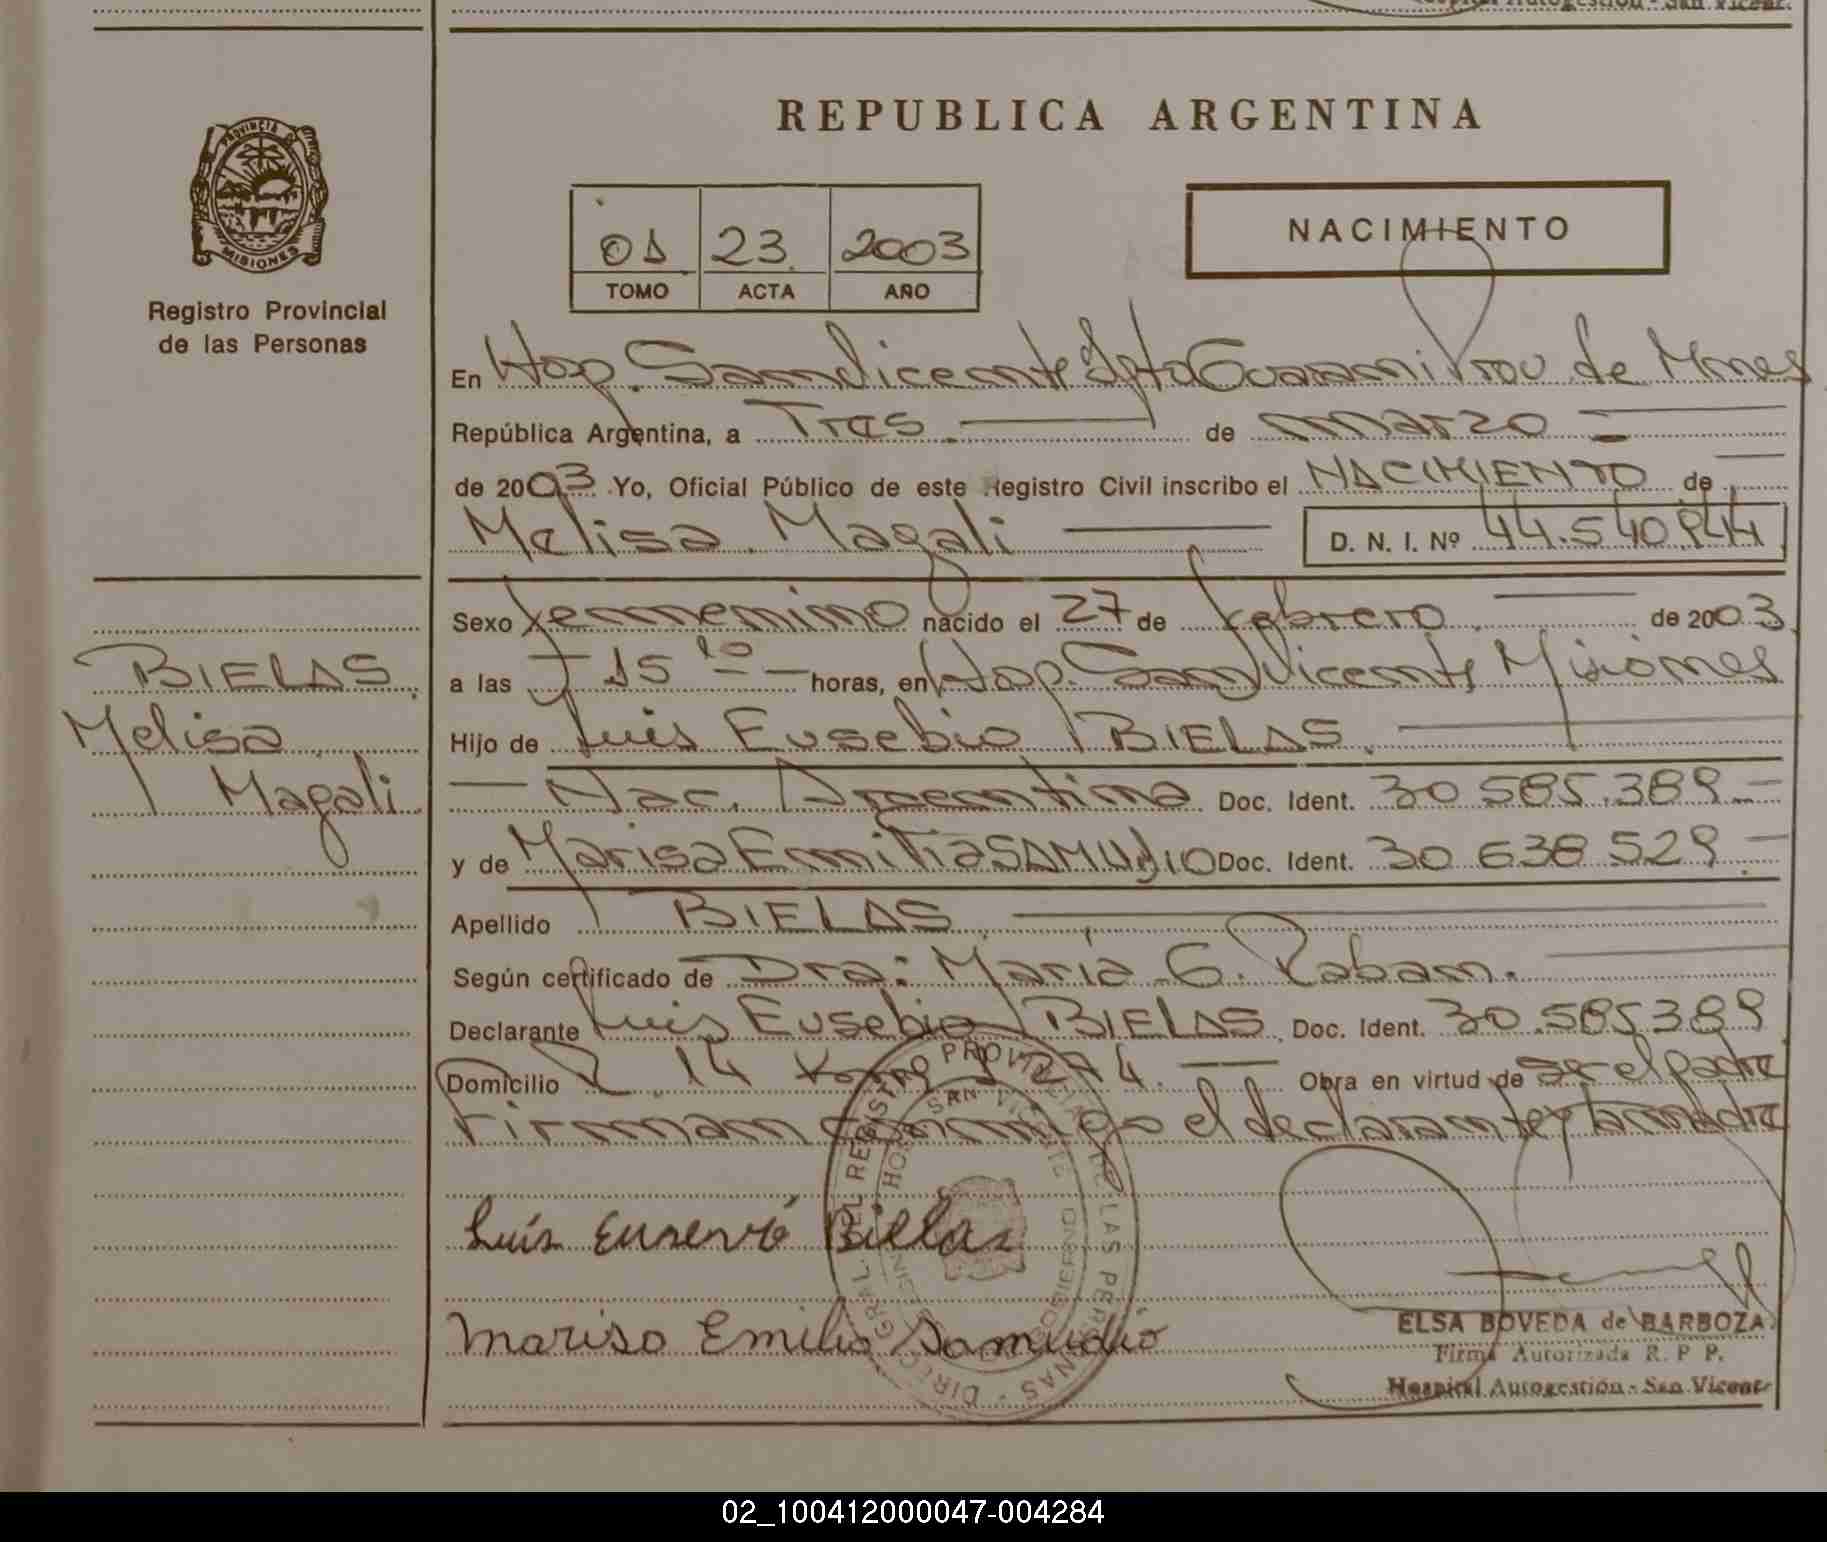 Hospital Autogestión - San Vicent.
PROVINCIA DE
MISIONES
Registro Provincial
de las Personas
REPUBLICA ARGENTINA
01 23 2003
TOMO ACTA AÑO
NACIMIENTO
En Hosp. San Vicente Dpto Guarani Prov de Mnes
República Argentina, a Tres de marzo
de 2003 Yo, Oficial Público de este Registro Civil inscribo el NACIMIENTO de
Melisa Magali D. N. I. Nº 44.540.844
Sexo femenino nacido el 27 de febrero de 2003
BIELAS
a las 15 10 horas, en Hosp. San Vicente Misiones
Melisa
Hijo de Luis Eusebio BIELAS.
Magali
Nac. Argentina Doc. Ident. 30.585.389
y de Marisa Emilia SAMUDIO Doc. Ident. 30 638 529
Apellido BIELAS
Según certificado de Dra: María G. Raban.
Declarante Luis Eusebio BIELAS. Doc. Ident. 30.585389
Domicilio 14 274. Obra en virtud de ser el padre
Firman conmigo el declarante y la madre
DIREC. GRAL. DEL REGISTRO PROVINCIAL DE LAS PERSONAS
SAN VICENTE
Luis Euservio Biellas
Mariso Emilio Samudio
ELSA BOVEDA de BARBOZA
Firma Autorizada R. P P.
Hospital Autogestión - San Vicent
02_100412000047-004284